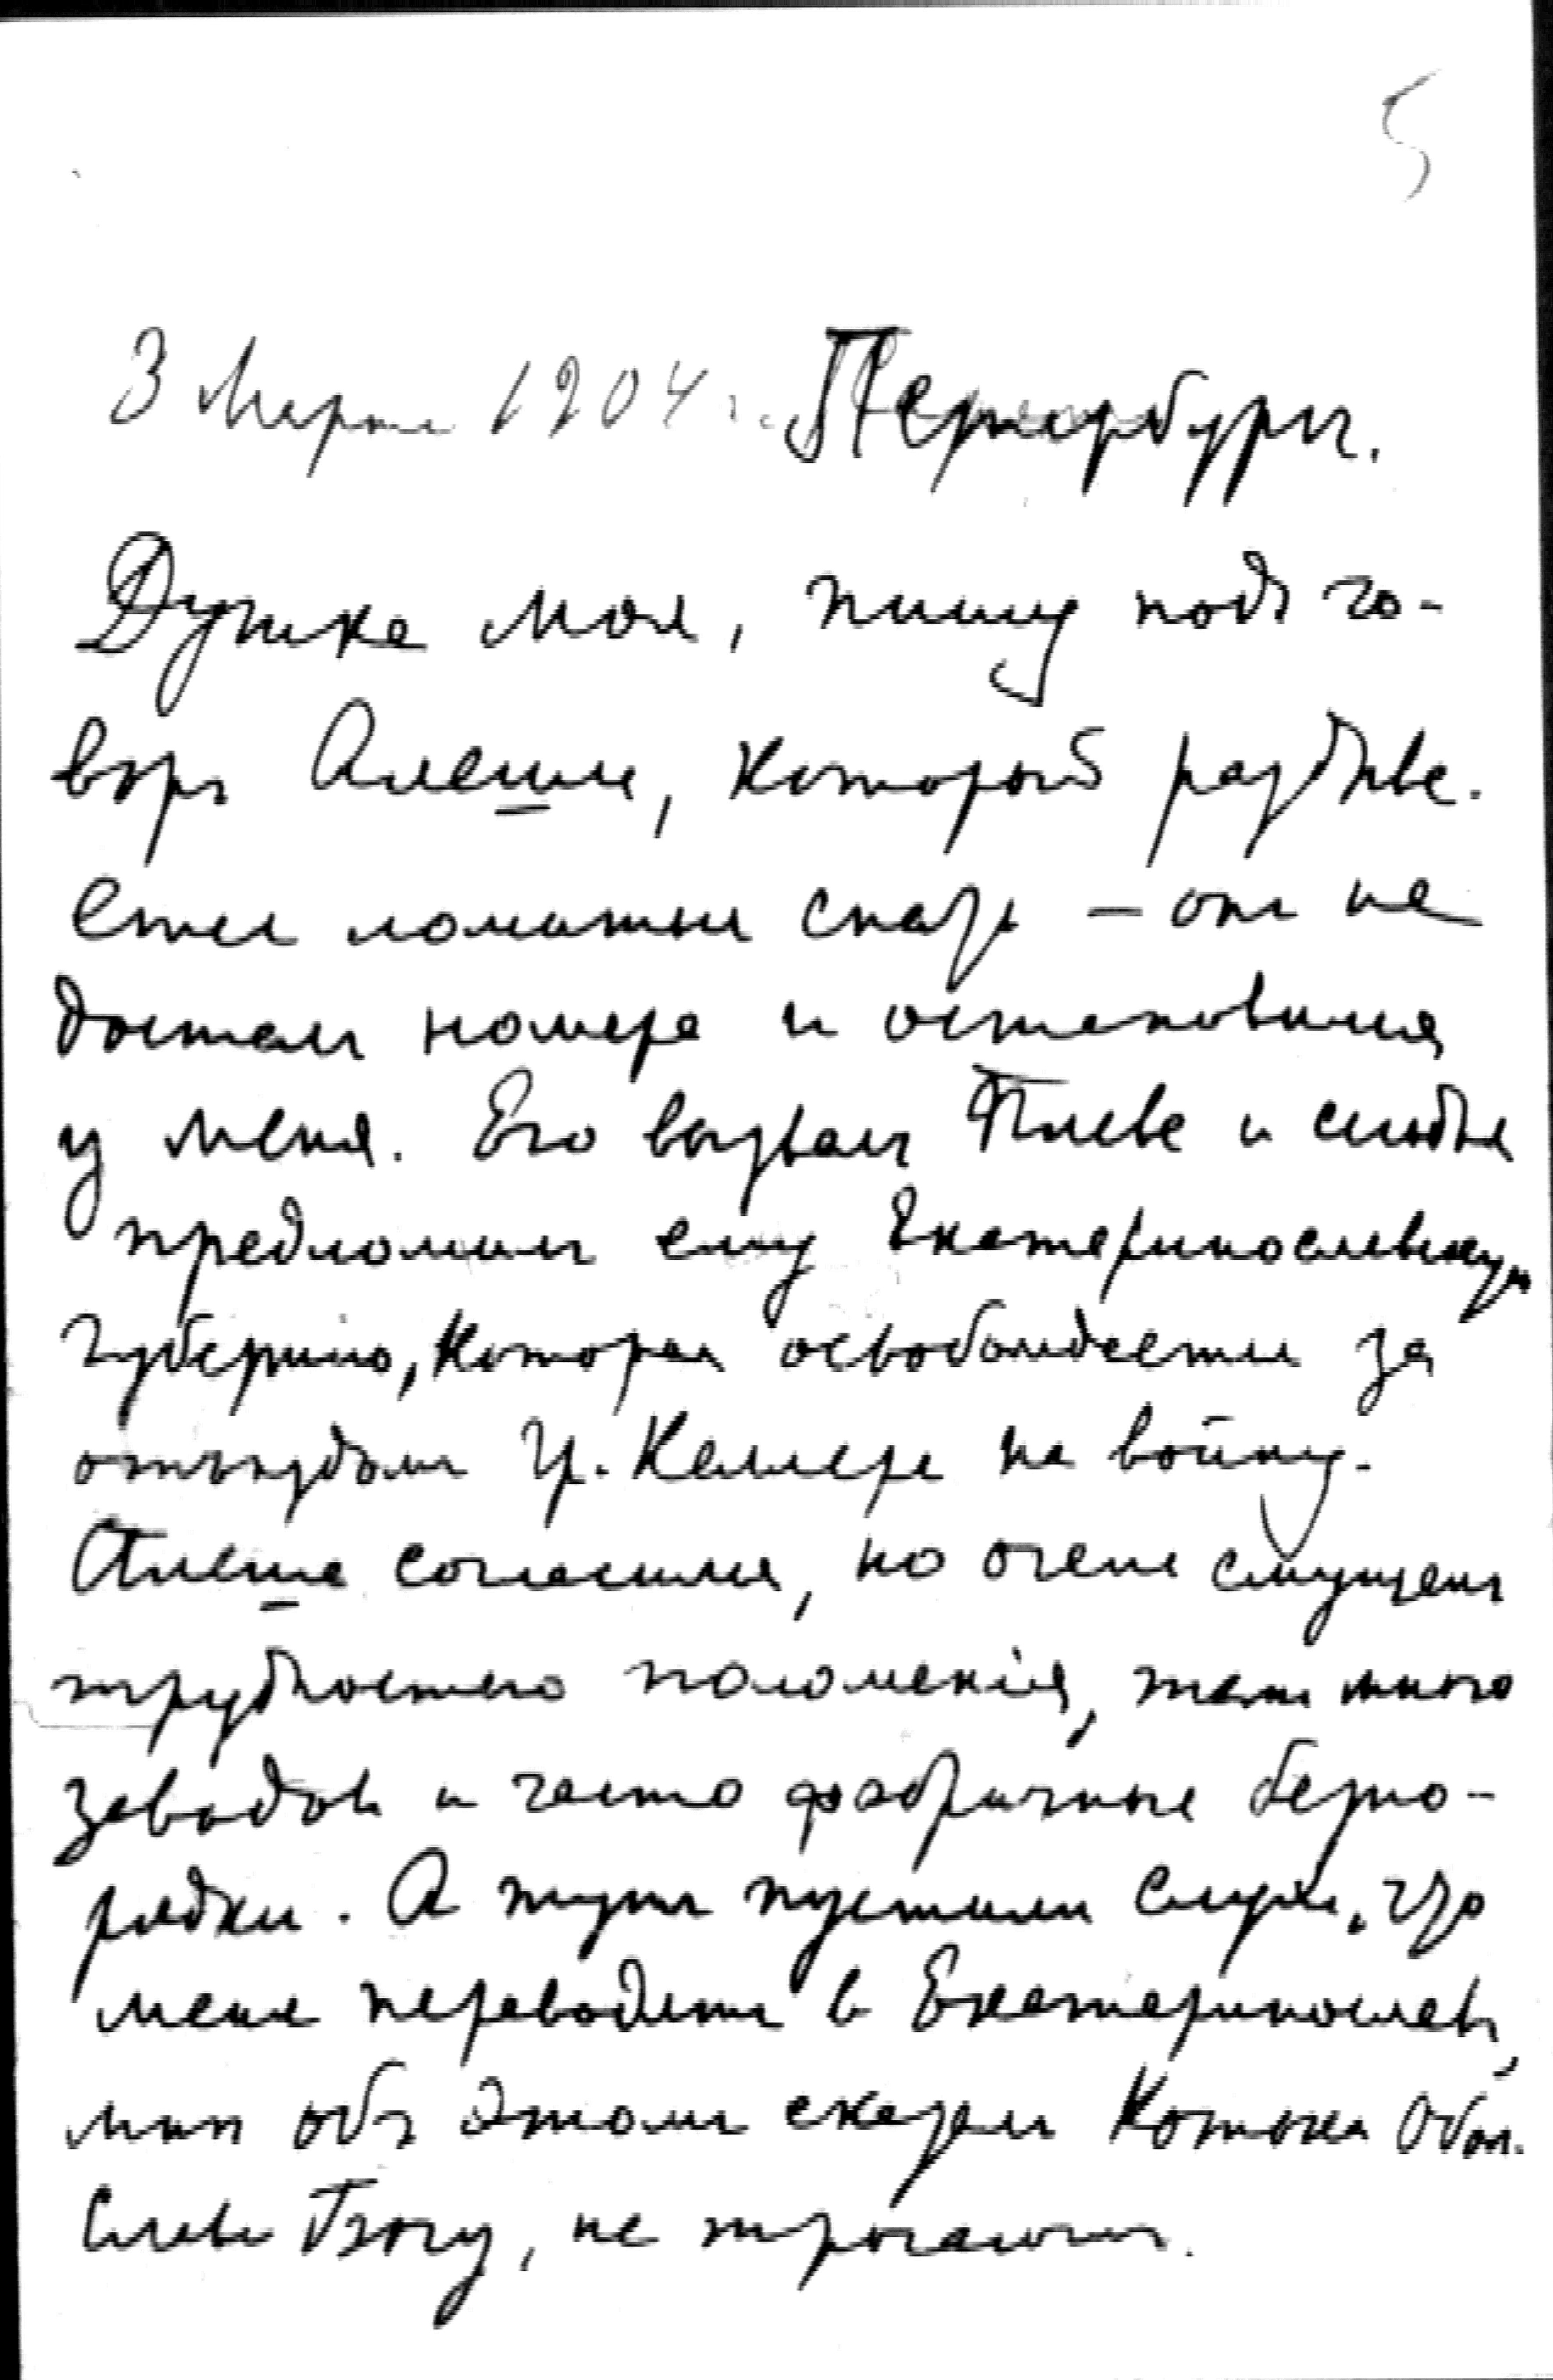 5
3 Марта 1904 г. Петербургъ.
Душка моя, пишу подъ го-
воръ Алеши, который раздѣва-
ется ложиться спать – онъ не
досталъ номера и остановился
у меня. Его вызвалъ Плеве и
предложилъ ему Екатеринославскую
губернію, которая освобождается за
отъѣздомъ гр. Келлера на войну.
Алеша согласился, но очень смущенъ
трудностью положенія, тамъ много
заводовъ и часто фабричные безпо-
рядки. А тутъ пустили слухъ, что
меня переводятъ в Екатеринославъ,
мнѣ объ этомъ сказалъ Котика Обол.
Слава Богу, не трогаютъ.